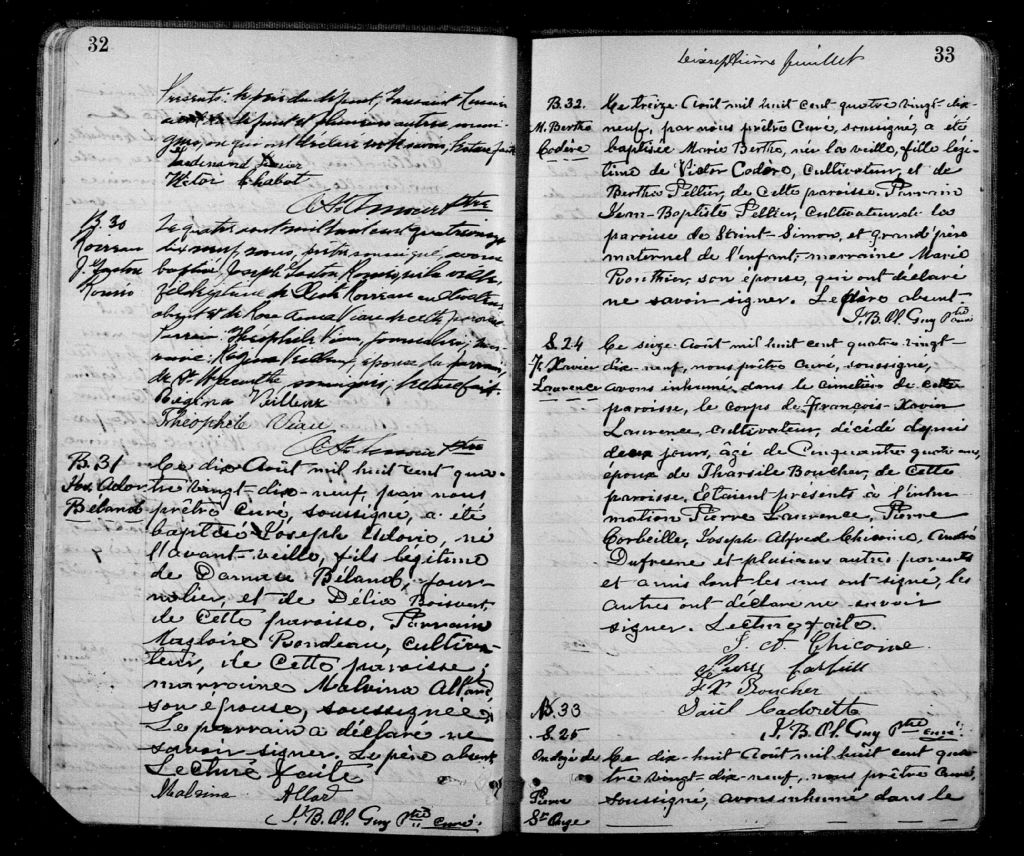 32
Présents: le père du défunt, Toussaint
et plusieurs autres
qui ont déclaré ne savoir signer. Lecture faite
Ferdinand
Victor Chabot
Ptre
B. 30
J. Gaston
Roméo
Le quatre août mil huit cent quatre vingt
dix neuf, nous, prêtre soussigné, avons
baptisé Joseph Gaston Roméo, né la veille,
fils légitime de
absent et de Rose Anna Viau de cette paroisse
Parrain: Théophile Viau, journalier;
Regina Veilleux, épouse du parrain,
de St Hyacinthe soussignés, lecture faite.
Regina Veilleux
Théophile Viau
Ptre
B. 31
Jos. Ador
Béland
Ce dix Août mil huit cent qua-
tre vingt-dix-neuf, par nous
prêtre curé, soussigné, a été
baptisé Joseph Adorio, né
l'avant-veille, fils légitime
de Damase Béland, jour-
nalier, et de Délia Boisvert,
de cette paroisse. Parrain
Magloire Rondeau, cultiva-
teur, de cette paroisse;
marraine Malvina Allard
son épouse, soussignée;
Le parrain a déclaré ne
savoir signer. Le père absent
Lecture faite
Malvina Allard
J. B. Ol. Guy Ptre curé.
dixseptième feuillet
33
B. 32.
M. Bertha
Codère
Ce treize Août mil huit cent quatre vingt-dix-
neuf, par nous prêtre Curé, soussigné, a été
baptisée Marie Bertha, née la veille, fille légi-
time de Victor Codère, Cultivateur, et de
Bertha Pellier, de cette paroisse. Parrain
Jean-Baptiste Pellier, Cultivateur de la
paroisse de Saint-Simon, et grand père
maternel de l'enfant; marraine Marie
Ponthier, son épouse, qui ont déclaré
ne savoir signer. Le père absent.
J. B. Ol. Guy Ptre curé
S. 24
F. Xavier
Laurence
Ce seize Août mil huit cent quatre vingt-
dix-neuf, nous prêtre curé, soussigné,
avons inhumé dans le cimetière de cette
paroisse, le corps de François-Xavier
Laurence, cultivateur, décédé depuis
deux jours, âgé de Cinquante quatre ans,
époux de Tharsile Boucher, de cette
paroisse. Etaient présents à l'inhu-
mation Pierre Laurence, Pierre
Corbeille, Joseph Alfred Chicoine, André
Dufresne et plusieurs autres parents
et amis dont les uns ont signé, les
autres ont déclaré ne savoir
signer. Lecture faite.
J. A. Chicoine
Pierre
F X Boucher
Saül Cadorette
J. B. Ol. Guy Ptre curé.
B. 33
S. 25
Ondoyé de
Pierre
St Onge
Ce dix-huit Août mil huit cent qua-
tre vingt-dix-neuf, nous prêtre Curé,
soussigné, avons inhumé dans le